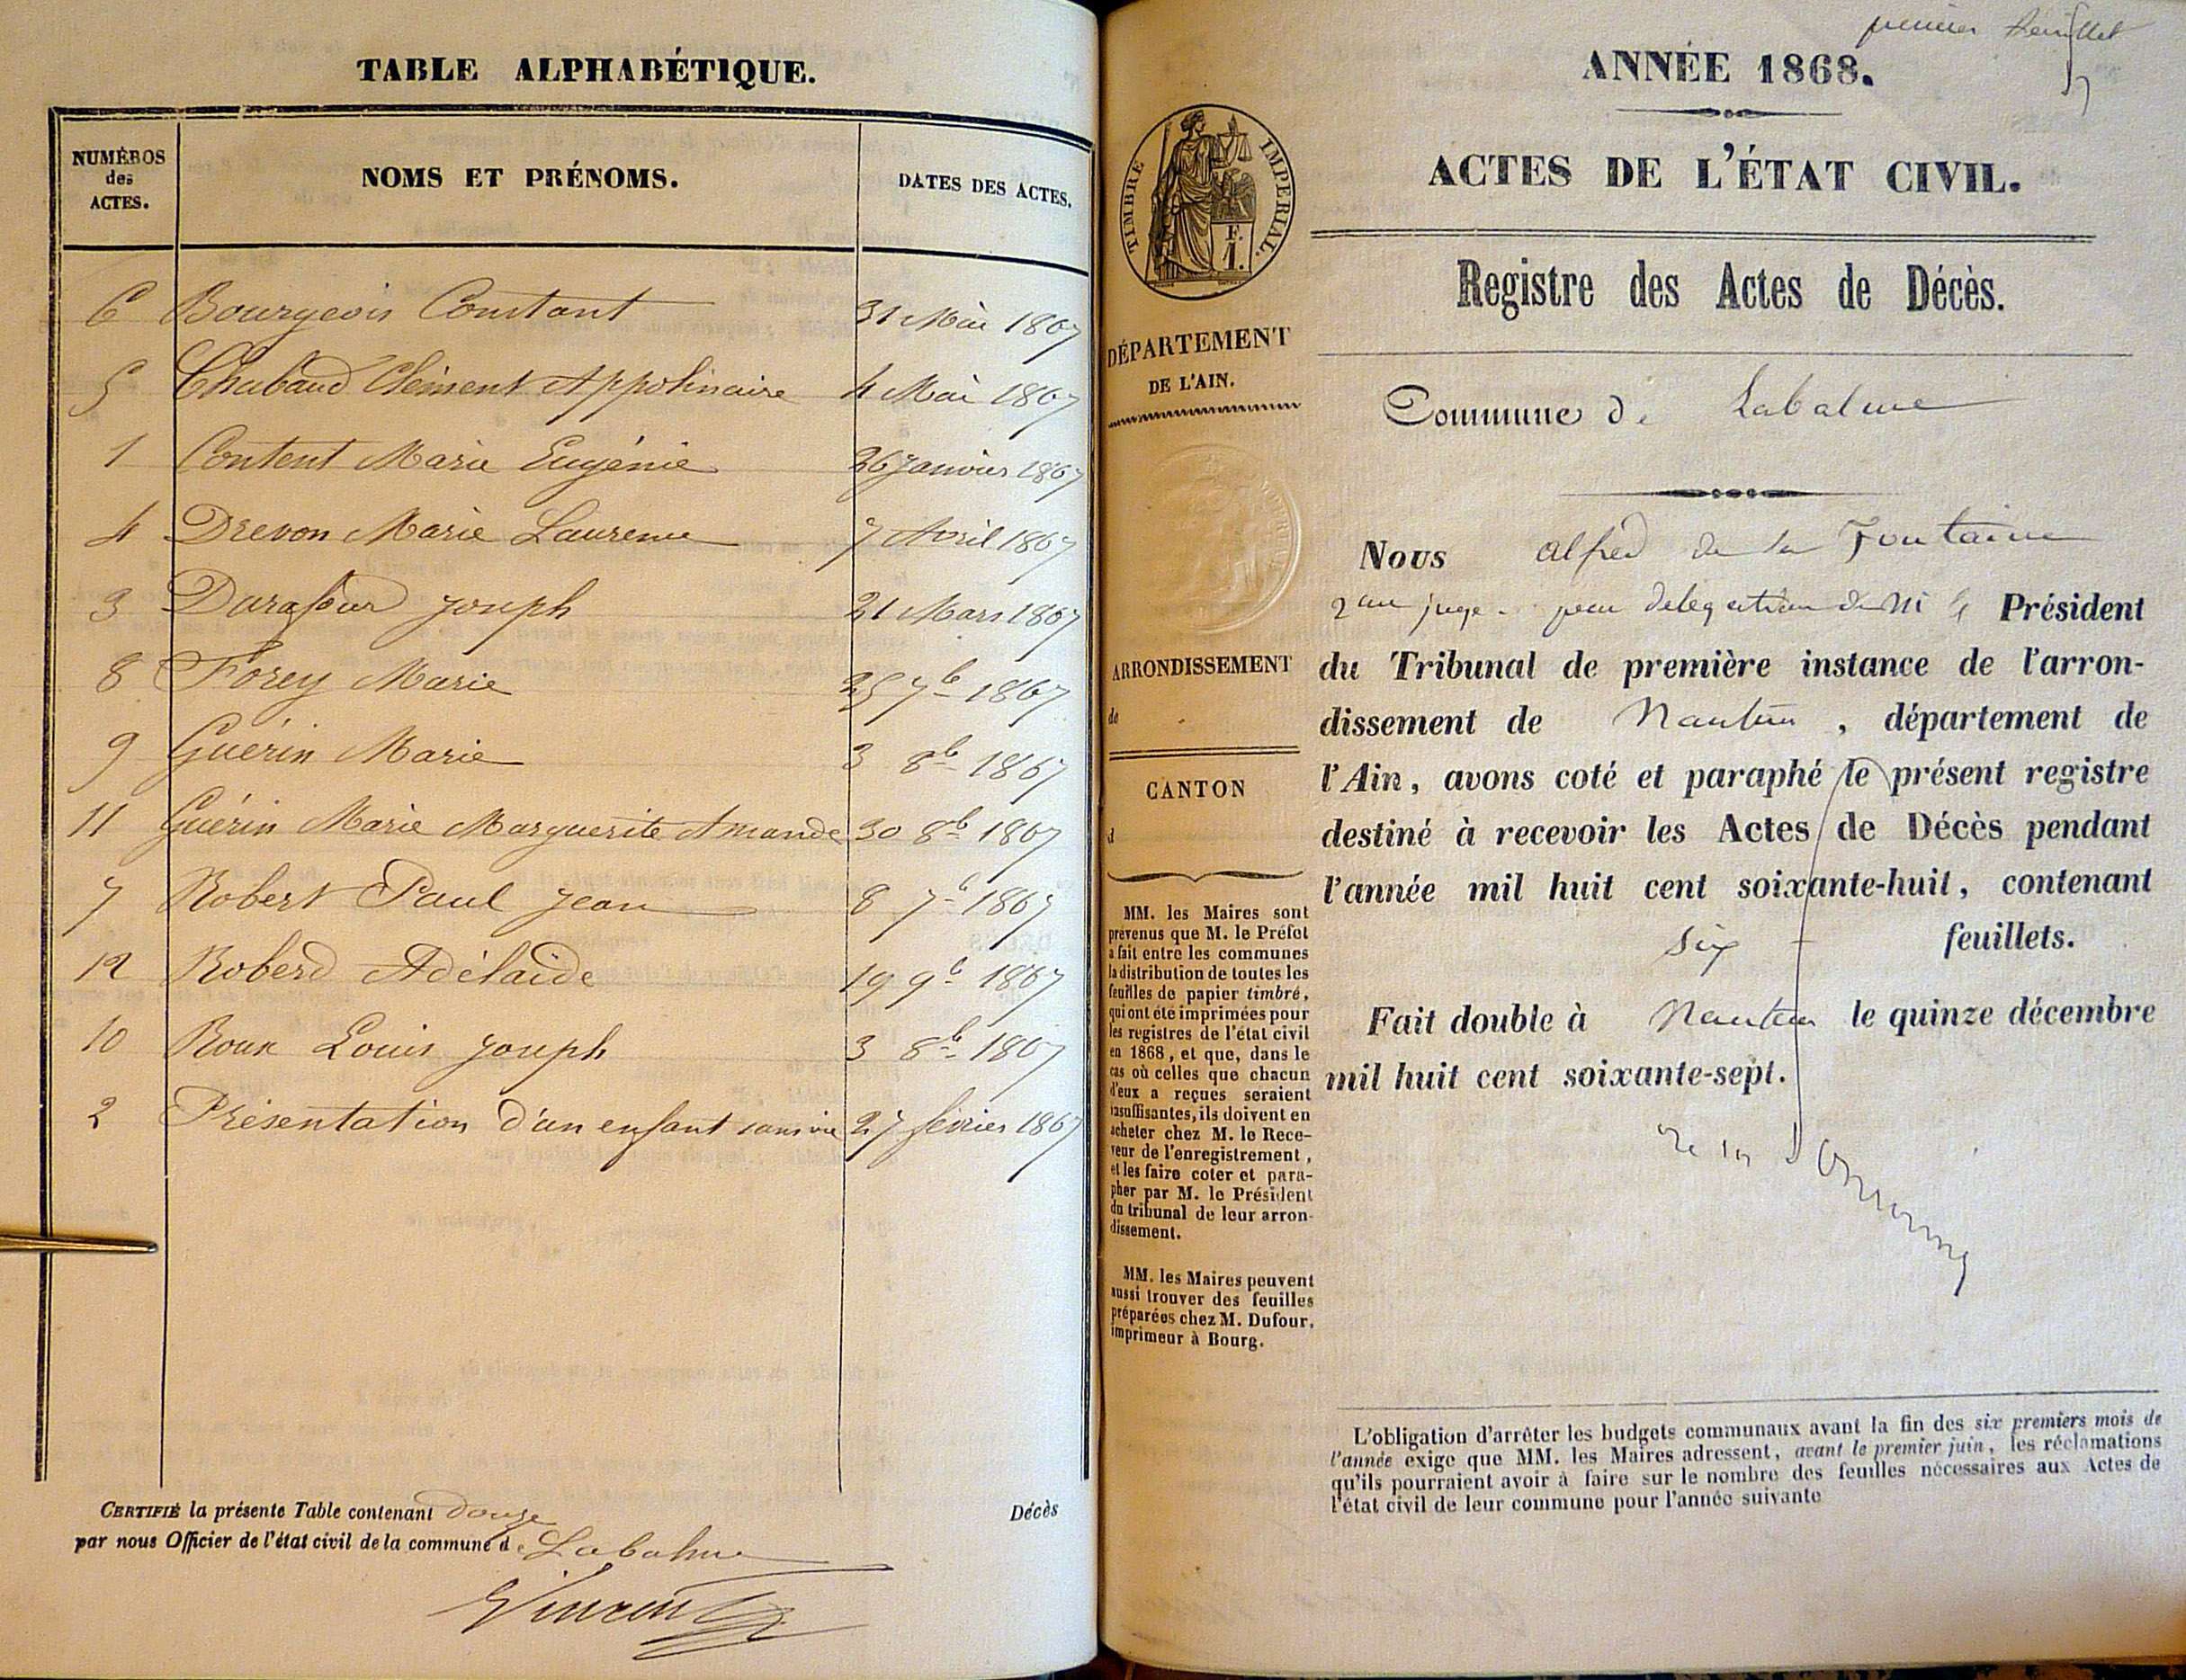 TABLE ALPHABÉTIQUE.
NUMÉROS des ACTES.
NOMS ET PRÉNOMS.
DATES DES ACTES.
6 Bourgeois Constant 31 Mai 1867
5 Chabaud Clément Appolinaire 4 Mai 1867
1 Content Marie Eugénie 26 janvier 1867
4 Drevon Marie Laurence 7 Avril 1867
3 Durafour joseph 21 Mars 1867
8 Forey Marie 25 7b 1867
9 Guérin Marie 3 8b 1867
11 Guérin Marie Marguerite Amande 30 8b 1867
7 Robert Paul jean 8 7b 1867
12 Roberd Adélaide 19 9b 1867
10 Roux Louis joseph 3 8b 1867
2 Présentation d'un enfant sans vie 27 février 1867
CERTIFIÉ la présente Table contenant douze Décès
par nous Officier de l'état civil de la commune de Labalme
Vincent
premier feuillet
ANNÉE 1868.
ACTES DE L'ÉTAT CIVIL.
TIMBRE IMPERIAL.
F.
1.
Registre des Actes de Décès.
DÉPARTEMENT
DE L'AIN.
Commune de Labalme
Nous Alfred de la Fontaine
juge par délégation de M le Président
du Tribunal de première instance de l'arron-
dissement de Nantua, département de
l'Ain, avons coté et paraphé le présent registre
destiné à recevoir les Actes de Décès pendant
l'année mil huit cent soixante-huit, contenant
six feuillets.
Fait double à Nantua le quinze décembre
mil huit cent soixante-sept.
ARRONDISSEMENT
de
CANTON
d
MM. les Maires sont
prévenus que M. le Préfet
a fait entre les communes
la distribution de toutes les
feuilles de papier timbré,
qui ont été imprimées pour
les registres de l'état civil
en 1868, et que, dans le
cas où celles que chacun
d'eux a reçues seraient
insuffisantes, ils doivent en
acheter chez M. le Rece-
veur de l'enregistrement,
et les faire coter et para-
pher par M. le Président
du tribunal de leur arron-
dissement.
MM. les Maires peuvent
aussi trouver des feuilles
préparées chez M. Dufour,
imprimeur à Bourg.
L'obligation d'arrêter les budgets communaux avant la fin des six premiers mois de
l'année exige que MM. les Maires adressent, avant le premier juin, les réclamations
qu'ils pourraient avoir à faire sur le nombre des feuilles nécessaires aux Actes de
l'état civil de leur commune pour l'année suivante